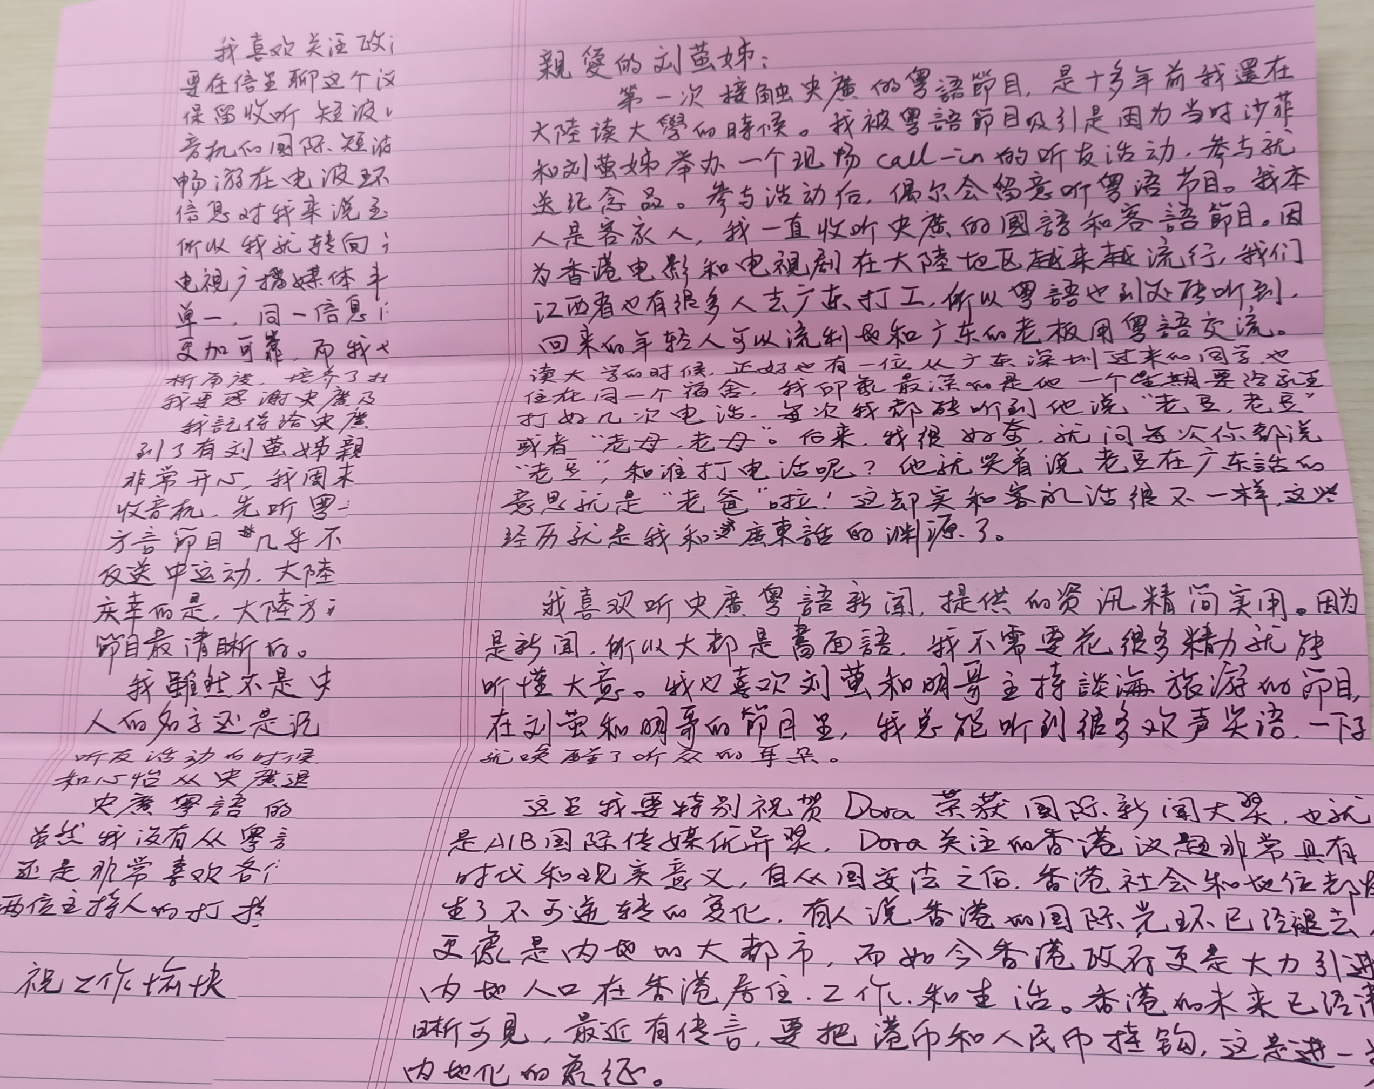 親愛的刘萤姊：
第一次接触央廣的粵語節目，是十多年前我還在
大陸读大學的時候。我被粵語節目吸引是因为当时沙菲
和刘萤姊举办一个现场 call-in 的听友活动，参与就
送纪念品。参与活动后，偶尔会留意听粤语节目。我本
人是客家人，我一直收听央廣的國語和客語節目。因
为香港电影和电视剧在大陸地区越来越流行，我们
江西省也有很多人去广东打工，所以粵語也到处能听到，
回来的年轻人可以流利地和广东的老板用粵語交流。
读大学的时候，正好也有一位从广东深圳过来的同学也
住在同一个宿舍，我印象最深的是他一个星期要给家里
打好几次电话，每次我都能听到他说“老豆，老豆”
或者“老母，老母”。后来，我很好奇，就问每次你都说
“老豆”，和谁打电话呢？他就笑着说老豆在广东話的
意思就是“老爸”啦！这却实和客家话很不一样，这些
经历就是我和廣東話的渊源了。
我喜欢听央廣粵語新闻，提供的资讯精简实用。因为
是新闻，所以大都是書面語，我不需要花很多精力就能
听懂大意。我也喜欢刘萤和明哥主持談海旅游的節目，
在刘萤和明哥的節目里，我总能听到很多欢声笑语，一下子
就唤醒了听众的耳朵。
这里我要特别祝贺 Dora 荣获国际新闻大奖，也就
是AIB国际传媒优异奖，Dora关注的香港议题非常具有
时代和现实意义，自从国安法之后，香港社会和地位都
生了不可逆转的变化，有人说香港的国际光环已经褪去，
更像是内地的大都市，而如今香港政府更是大力引进
内地人口在香港居住、工作、和生活。香港的未来已经清
晰可见，最近有传言，要把港币和人民币挂钩，这是进一
内地化的象征。
我喜欢关注政
要在信里聊这个议
保留收听短波
音机的国际短波
畅游在电波环
信息对我来说至
所以我就转向
电视广播媒体
单一，同一信息
更加可靠，而我
析角度，培养了
我要感谢央廣
我記得给央廣
到了有刘萤姊親
非常开心，我周末
收音机，先听粤
方言節目几乎不
反送中运动，大陸
庆幸的是，大陸方
節目最清晰的。
我雖然不是央
人的名字还是说
听友活动的时候
和心怡从央廣退
央廣粵語的
虽然我没有从粵語
还是非常喜欢各
两位主持人的打
祝工作愉快